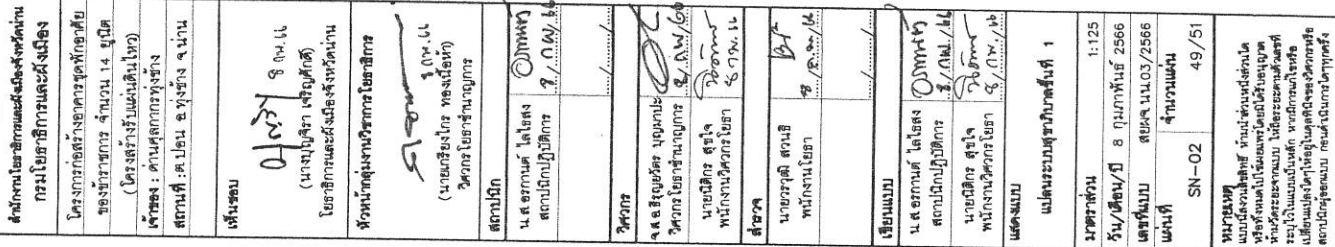 สำนักงานโยธาธิการและผังเมืองจังหวัดน่าน
กรมโยธาธิการและผังเมือง
โครงการก่อสร้างอาคารชุดพักอาศัย
ของข้าราชการ จำนวน 14 ยูนิต
(โครงสร้างรับแผ่นดินไหว)
เจ้าของ : ด่านศุลกากรทุ่งช้าง
สถานที่ :ต.ปอน อ.ทุ่งช้าง จ.น่าน
เห็นชอบ
8 กพ. 66
(นางบุญจิรา เจริญศักดิ์)
โยธาธิการและผังเมืองจังหวัดน่าน
หัวหน้ากลุ่มงานวิชาการโยธาธิการ
8 กพ. 66
(นายเกรียงไกร ทองเนื้อห้า)
วิศวกรโยธาชำนาญการ
สถาปนิก
น.ส.อรกานต์ ไลไธสง
สถาปนิกปฏิบัติการ
8 / กพ / 66
วิศวกร
วิศวกรโยธาชำนาญการ
8 / กพ / 66
นายนิติกร สุขใจ
พนักงานวิศวกรโยธา
8 / กพ. 66
สำรวจ
นายวรวุฒิ สวนธิ
พนักงานโยธา
เขียนแบบ
น.ส.อรกานต์ ไลไธสง
สถาปนิกปฏิบัติการ
8 / กพ. / 66
นายนิติกร สุขใจ
พนักงานวิศวกรโยธา
8 / กพ. / 66
แสดงแบบ
แปลนระบบสุขาภิบาลชั้นที่ 1
มาตราส่วน 1:125
วัน/เดือน/ปี 8 กุมภาพันธ์ 2566
เลขที่แบบ สยผจ.นน.03/2566
แผ่นที่ จำนวนแผ่น
SN-02 49/51
หมายเหตุ
แบบนี้สงวนลิขสิทธิ์ ห้ามนำส่วนหนึ่งส่วนใด
หรือทั้งหมดไปใช้เผยแพร่โดยมิได้รับอนุญาต
ห้ามวัดระยะจากแบบ ให้ถือระยะตามตัวเลขที่
ระบุไว้ในแบบเป็นหลัก หากมีการแก้ไขหรือ
เปลี่ยนแปลงใดๆให้อยู่ในดุลพินิจของวิศวกรหรือ
สถาปนิกผู้ออกแบบ ก่อนดำเนินการใดๆทุกครั้ง